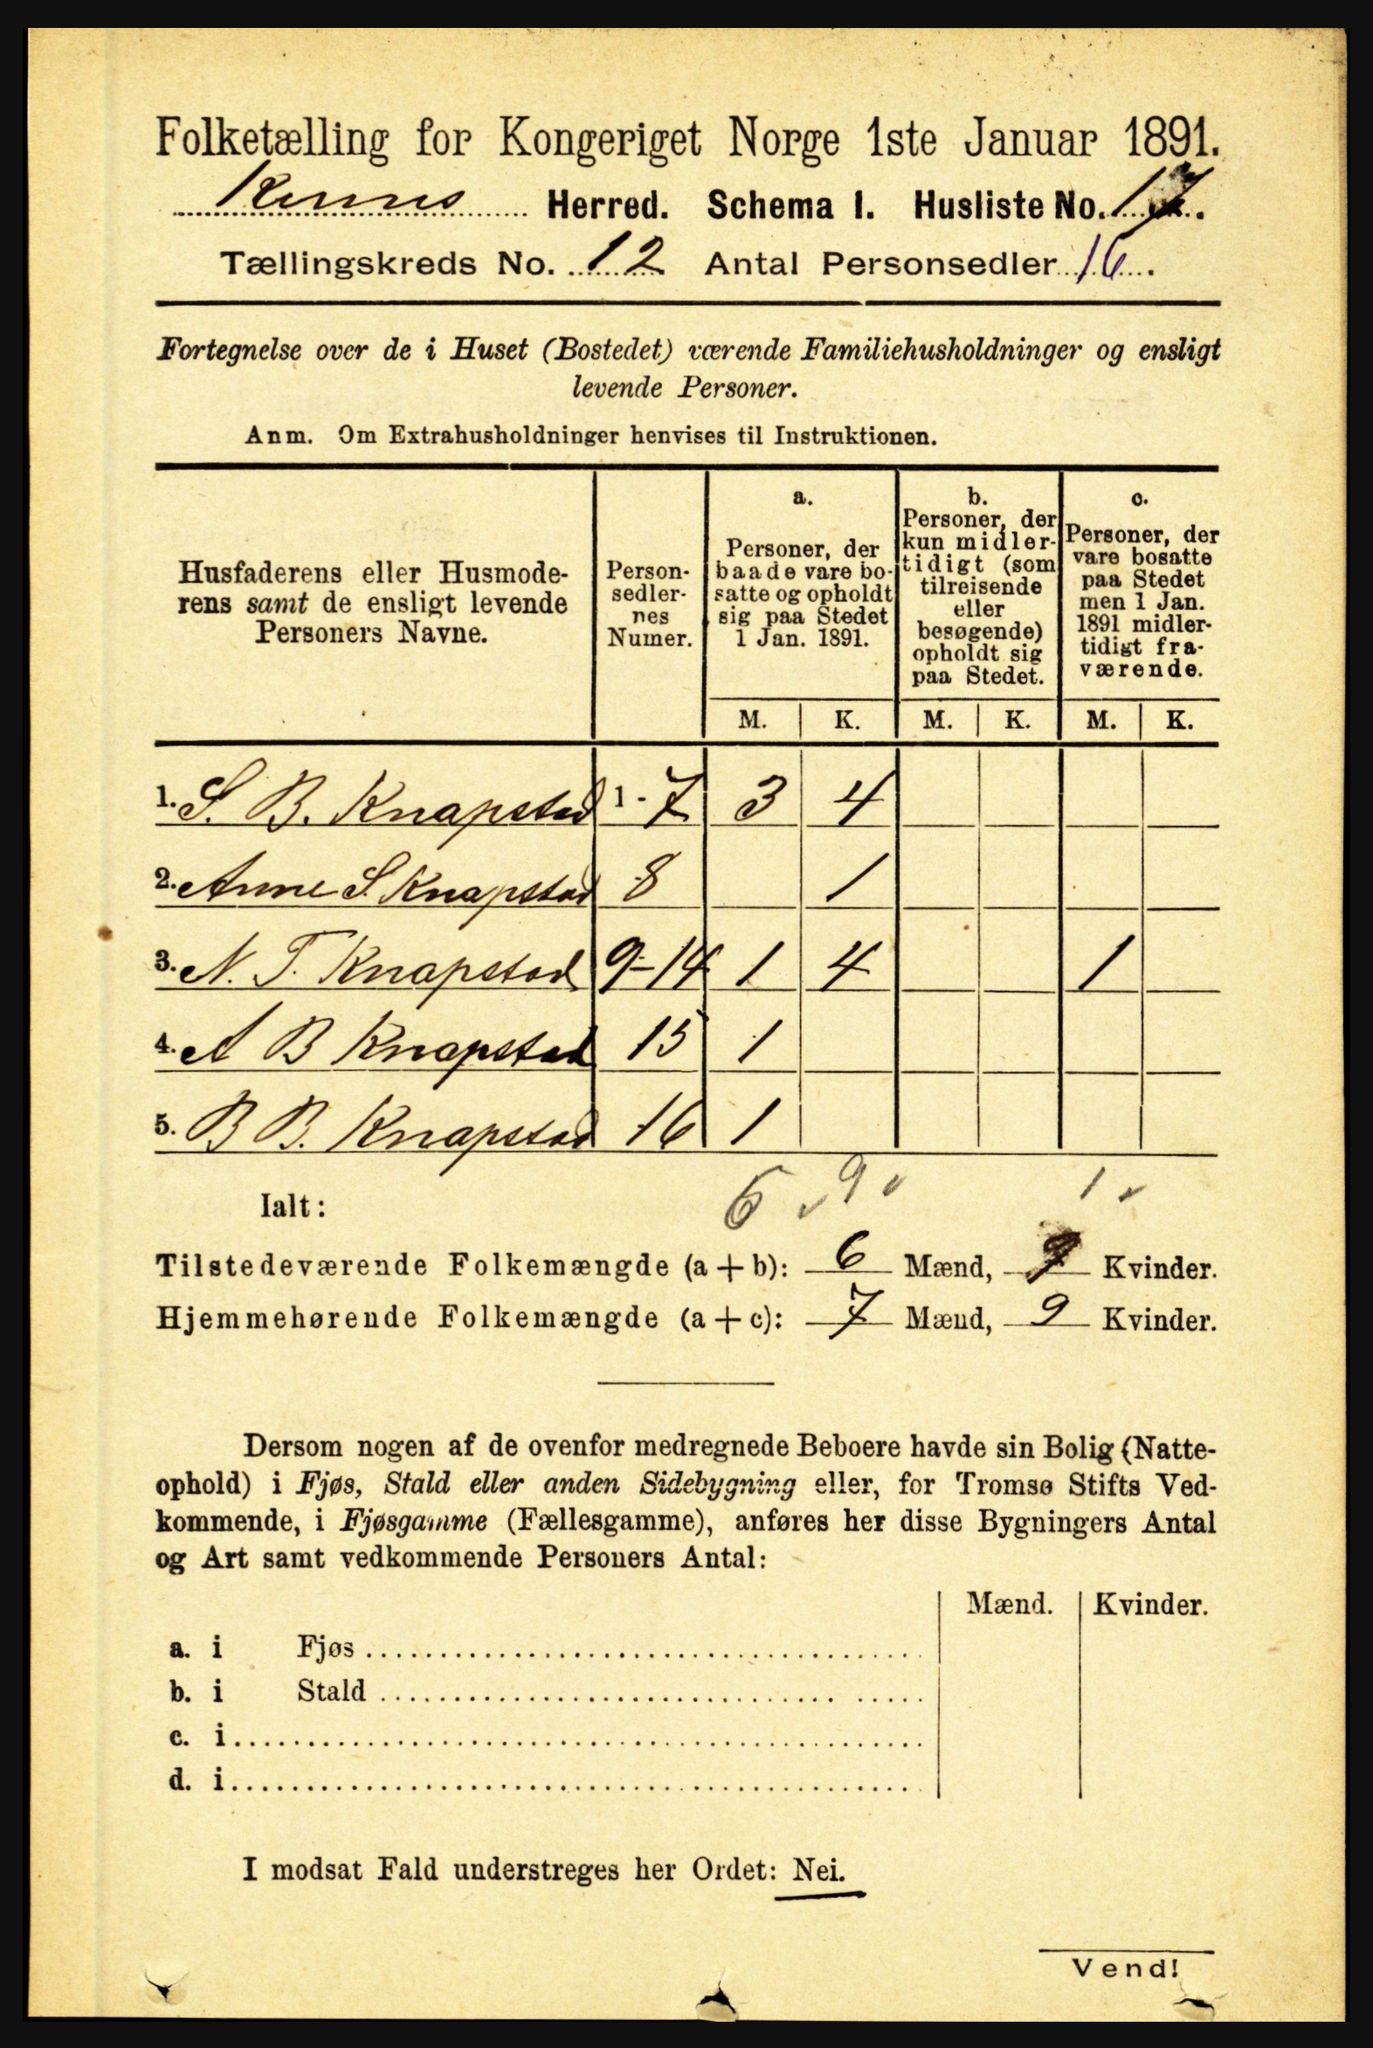 Folketælling for Kongeriget Norge 1ste Januar 1891.
Kinns Herred. Schema I. Husliste No. 17.
Tællingskreds No. 12 Antal Personsedler 16.
Fortegnelse over de i Huset (Bostedet) værende Familiehusholdninger og ensligt
levende Personer.
Anm. Om Extrahusholdninger henvises til Instruktionen.
Husfaderens eller Husmode-
rens samt de ensligt levende
Personers Navne.
Person-
sedler-
nes
Numer.
a.
Personer, der
baade vare bo-
satte og opholdt
sig paa Stedet
1 Jan. 1891.
b.
Personer, der
kun midler-
tidigt (som
tilreisende
eller
besøgende)
opholdt sig
paa Stedet.
c.
Personer, der
vare bosatte
paa Stedet
men 1 Jan.
1891 midler-
tidigt fra-
værende.
M. K. M. K. M. K.
1. S. B. Knapstad 1-7 3 4
2. Anne S. Knapstad 8 1
3. N. T. Knapstad 9-14 1 4 1
4. A B Knapstad 15 1
5. B B. Knapstad 16 1
Ialt: 6 9 1
Tilstedeværende Folkemængde (a + b): 6 Mænd, 9 Kvinder.
Hjemmehørende Folkemængde (a + c): 7 Mænd, 9 Kvinder.
Dersom nogen af de ovenfor medregnede Beboere havde sin Bolig (Natte-
ophold) i Fjøs, Stald eller anden Sidebygning eller, for Tromsø Stifts Ved-
kommende, i Fjøsgamme (Fællesgamme), anføres her disse Bygningers Antal
og Art samt vedkommende Personers Antal:
Mænd. Kvinder.
a. i Fjøs
b. i Stald
c. i
d. i
I modsat Fald understreges her Ordet: Nei.
Vend!